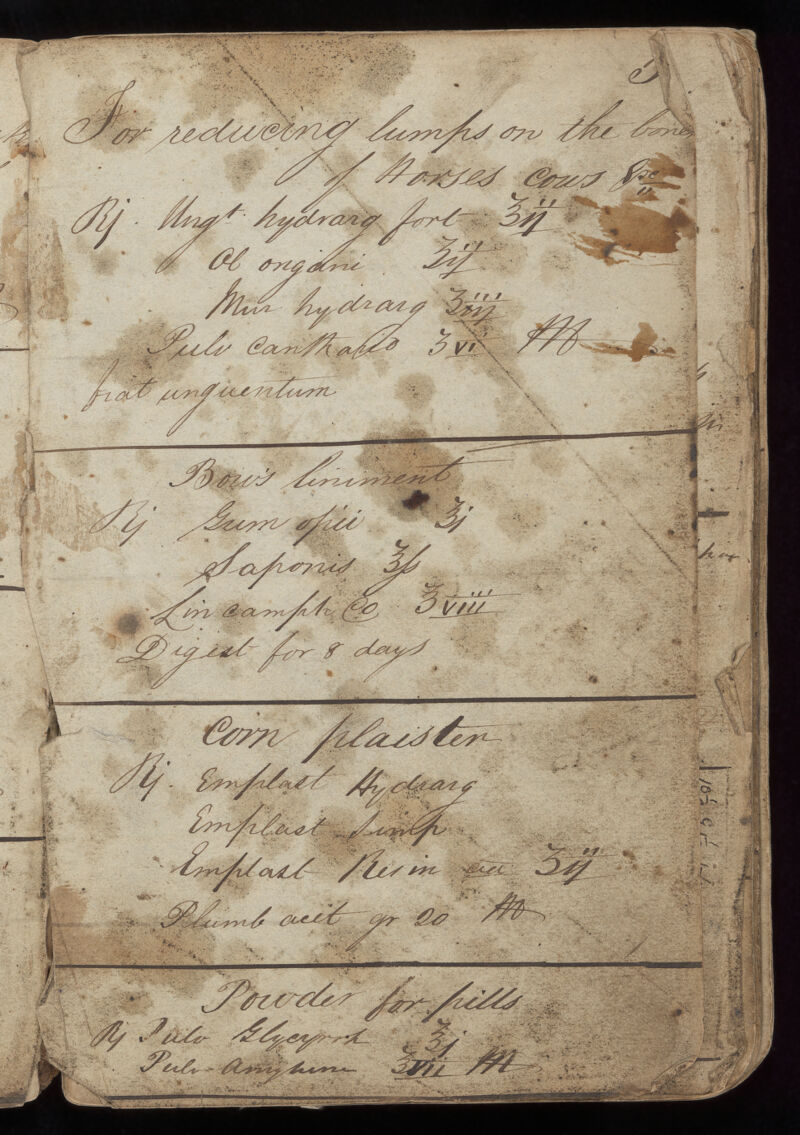 5
For reducing lumps on the bones
of Horses cows &c
Rj. Ungt hydrarg fort ʒij
Ol origani ʒij
Mur hydrarg ʒiij
Pulv canthario ʒvi M
fiat unguentum
Bow's liniment
Rj Gum opii ʒj
Saponis ʒſs
Lin camph Co ʒviii
Digest for 8 days
Corn plaister
Rj. Emplast Hydrarg
Emplast Simp
Emplast Resin aa ʒij
Plumb acit gr 20 M
Powder for pills
Rj Pulv Glycyrrh ʒj
Pulv ʒvii M